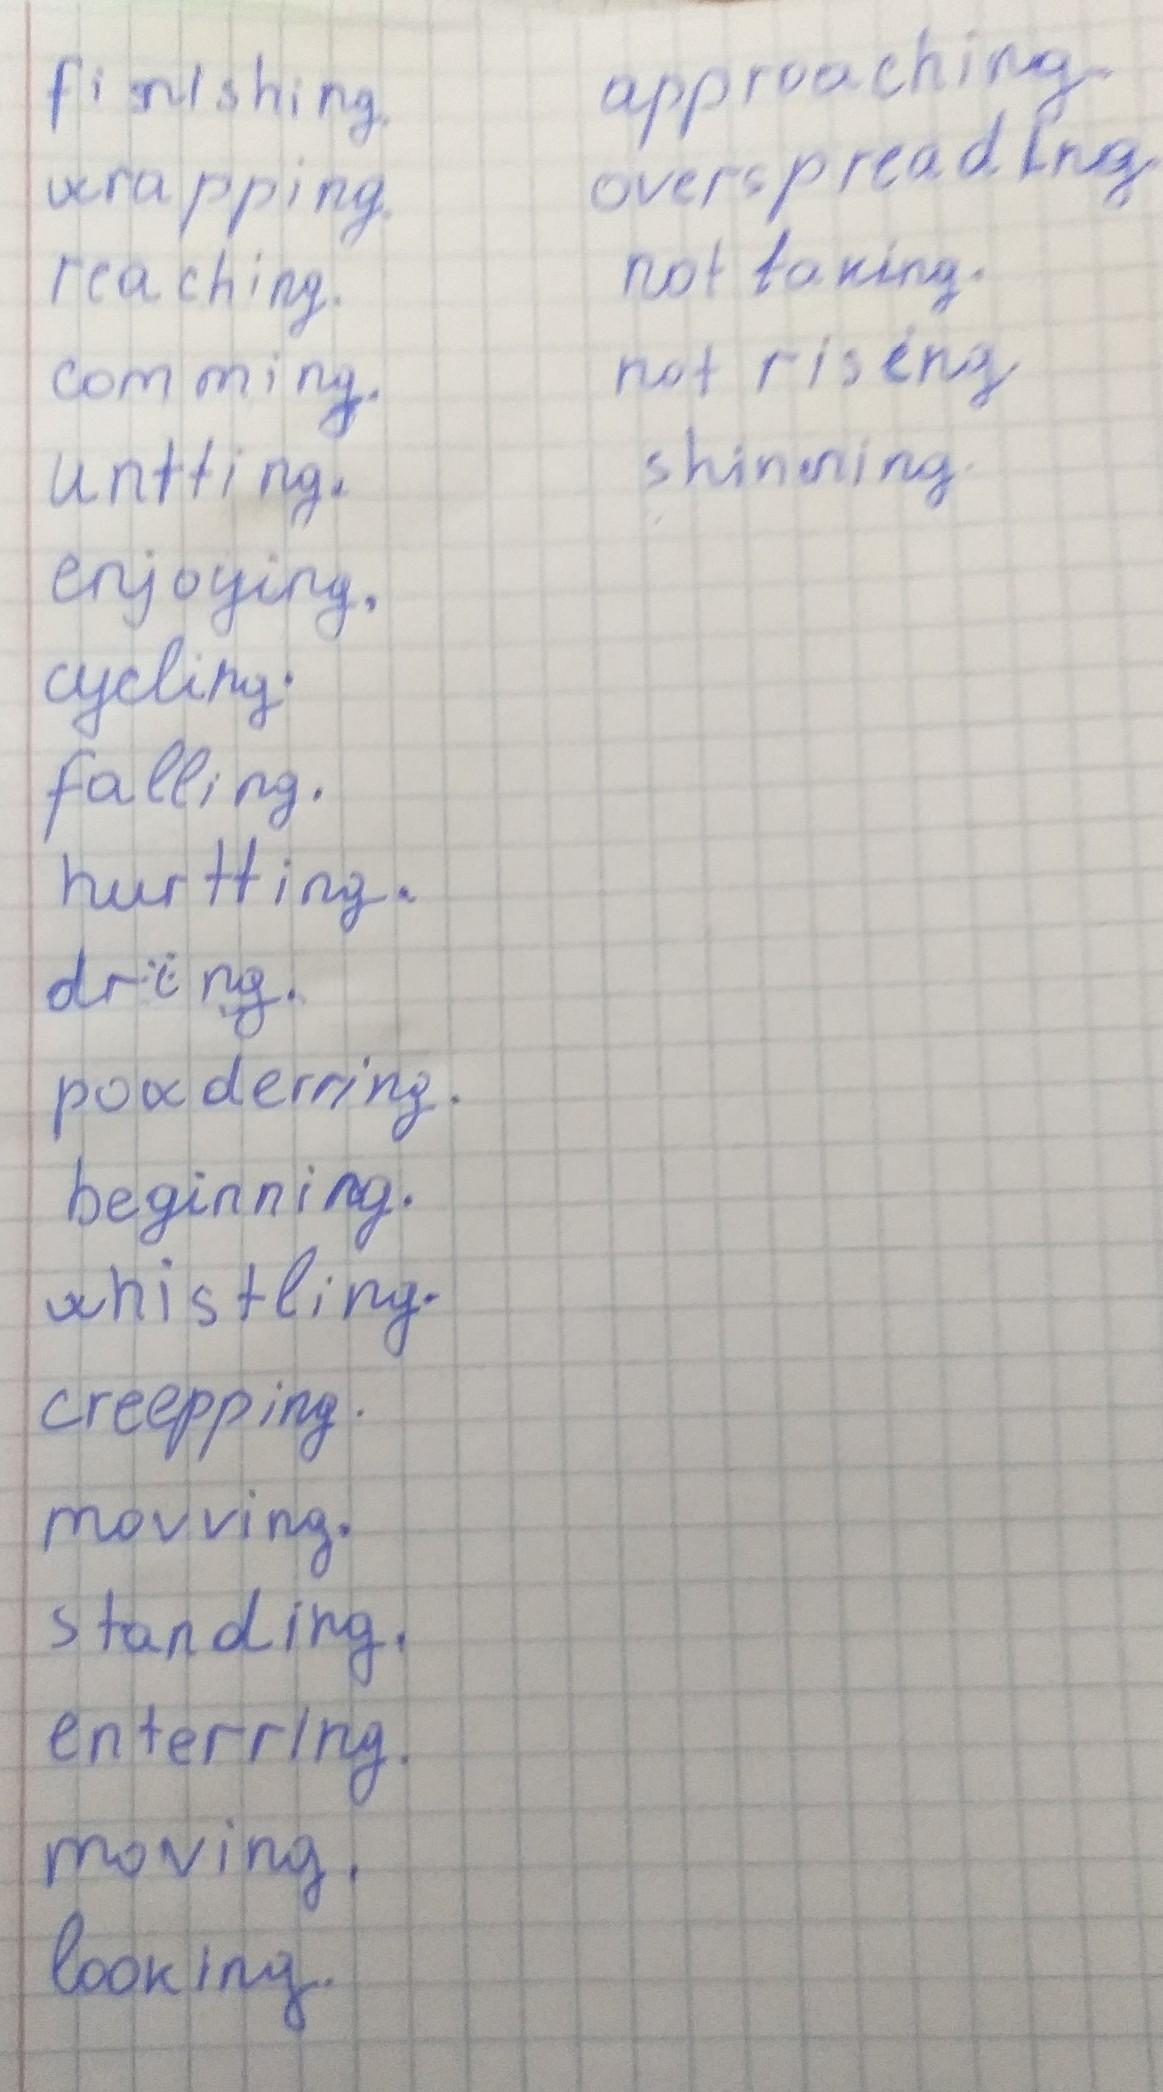 finishing.
wrapping.
reaching.
comming.
untting.
enjoying.
cycling.
falling.
hurtting.
driing.
powderring.
beginning.
whistling.
creepping.
movving.
standing.
enterring.
moving.
looking.
approaching.
overspreading
not taking.
not rising
shinning.